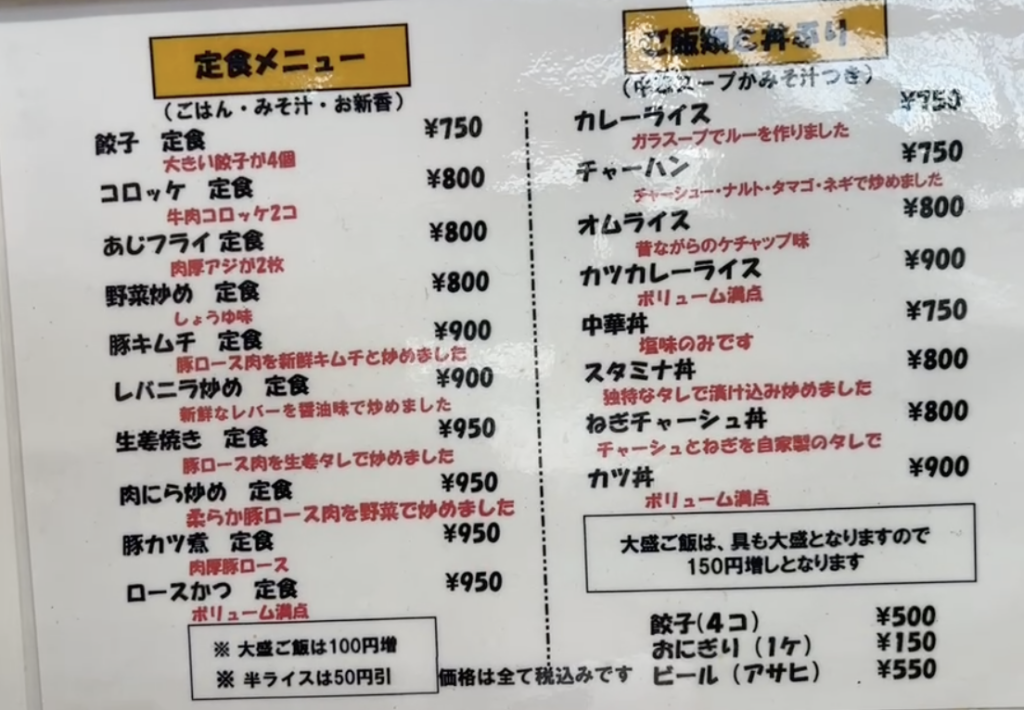 定食メニュー
(ごはん・みそ汁・お新香)
餃子 定食 ¥750
大きい餃子が4個
コロッケ 定食 ¥800
牛肉コロッケ2コ
あじフライ 定食 ¥800
肉厚アジが2枚
野菜炒め 定食 ¥800
しょうゆ味
豚キムチ 定食 ¥900
豚ロース肉を新鮮キムチと炒めました
レバニラ炒め 定食 ¥900
新鮮なレバーを醤油味で炒めました
生姜焼き 定食 ¥950
豚ロース肉を生姜タレで炒めました
肉にら炒め 定食 ¥950
柔らか豚ロース肉を野菜で炒めました
豚カツ煮 定食 ¥950
肉厚豚ロース
ロースかつ 定食 ¥950
ボリューム満点
※ 大盛ご飯は100円増
※ 半ライスは50円引
ご飯類と丼ぶり
(中華スープかみそ汁つき)
カレーライス ¥750
ガラスープでルーを作りました
チャーハン ¥750
チャーシュー・ナルト・タマゴ・ネギで炒めました
オムライス ¥800
昔ながらのケチャップ味
カツカレーライス ¥900
ボリューム満点
中華丼 ¥750
塩味のみです
スタミナ丼 ¥800
独特なタレで漬け込み炒めました
ねぎチャーシュ丼 ¥800
チャーシュとねぎを自家製のタレで
カツ丼 ¥900
ボリューム満点
大盛ご飯は、具も大盛となりますので
150円増しとなります
餃子(4コ) ¥500
おにぎり (1ケ) ¥150
ビール (アサヒ) ¥550
価格は全て税込みです